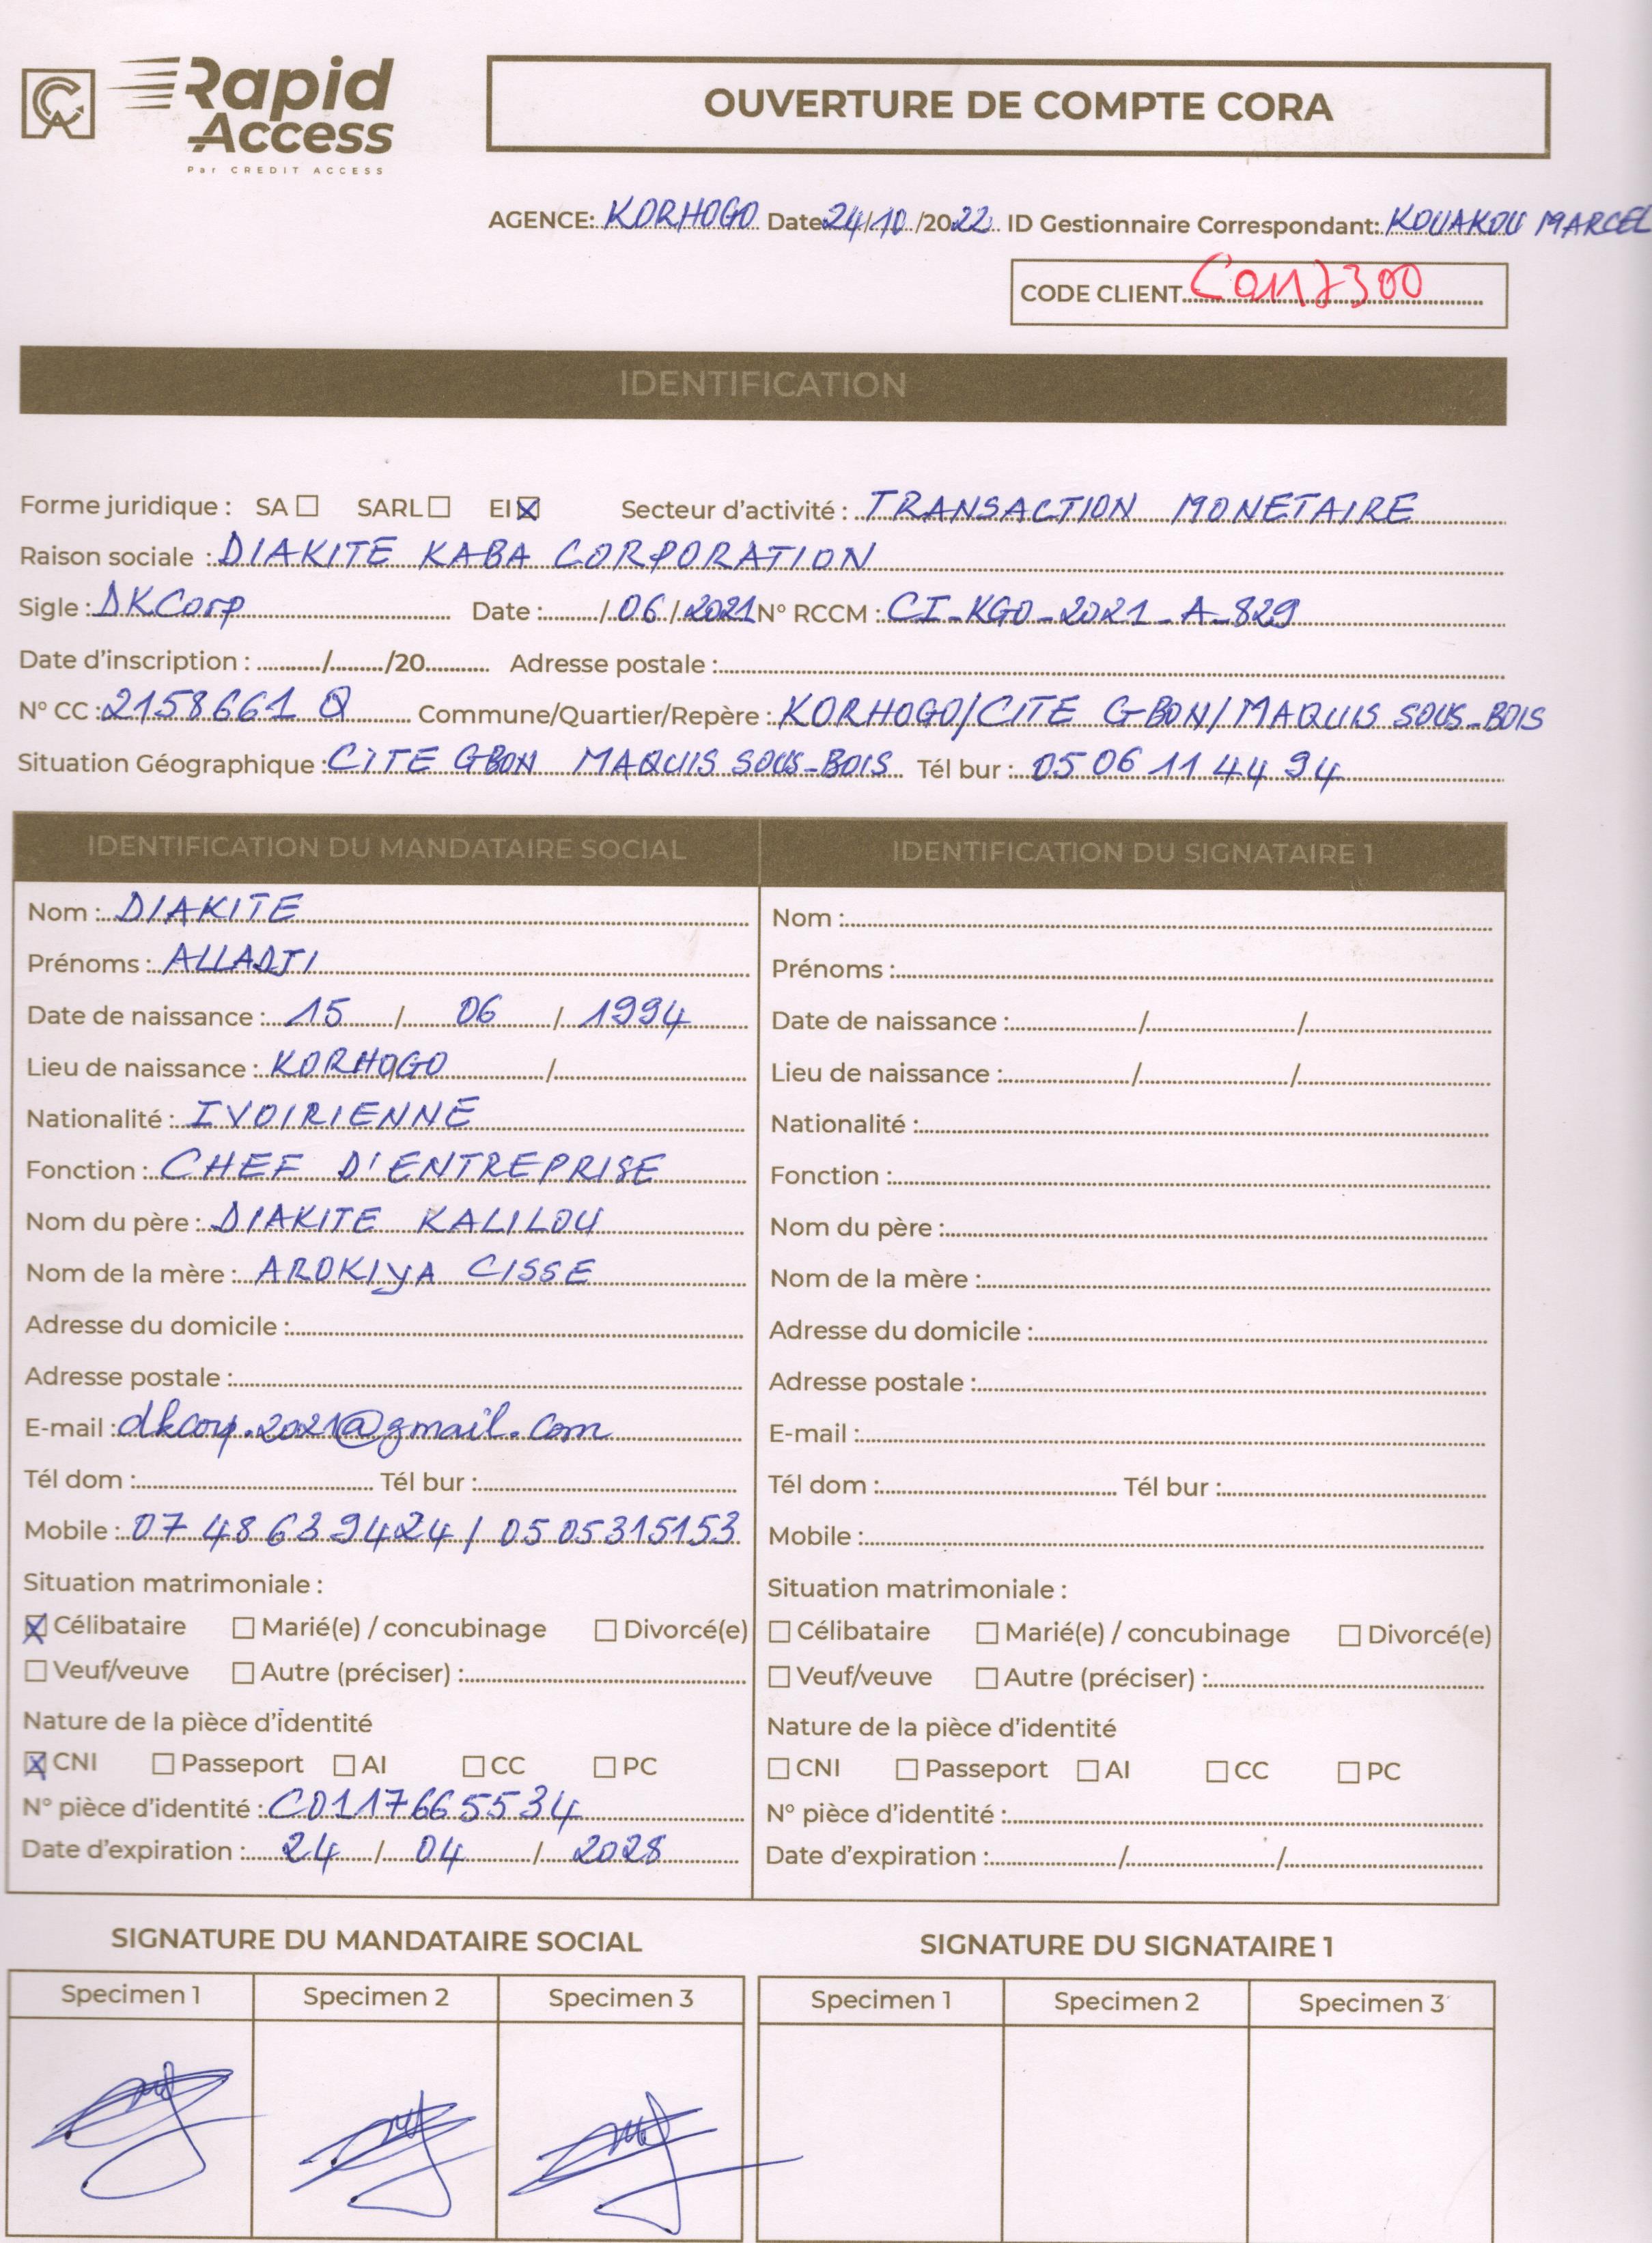 Rapid
Access
Par CREDIT ACCESS
OUVERTURE DE COMPTE CORA
AGENCE: KORHOGO Date 24/10/2022 ID Gestionnaire Correspondant: KOUAKOU MARCEL
CODE CLIENT
IDENTIFICATION
Forme juridique : SA ☐ SARL ☐ EI ☒ Secteur d'activité : TRANSACTION MONETAIRE
Raison sociale : DIAKITE KABA CORPORATION
Sigle : DKCorp Date : ......../06/2021 N° RCCM : CI_KGO_2021_A_829
Date d'inscription : ........../........./20.......... Adresse postale :
N° CC : 2158661 Q Commune/Quartier/Repère : KORHOGO/CITE GBON/MAQUIS SOUS-BOIS
Situation Géographique : CITE GBON MAQUIS SOUS-BOIS Tél bur : 05 06 11 44 94
IDENTIFICATION DU MANDATAIRE SOCIAL
Nom : DIAKITE
Prénoms : ALLADJI
Date de naissance : 15 / 06 / 1994
Lieu de naissance : KORHOGO /
Nationalité : IVOIRIENNE
Fonction : CHEF D'ENTREPRISE
Nom du père : DIAKITE KALILOU
Nom de la mère : AROKIYA CISSE
Adresse du domicile :
Adresse postale :
E-mail : dkcorp.2021@gmail.com
Tél dom : Tél bur :
Mobile : 07 48 63 94 24 / 05 05 31 51 53
Situation matrimoniale :
☒ Célibataire ☐ Marié(e) / concubinage ☐ Divorcé(e)
☐ Veuf/veuve ☐ Autre (préciser) :
Nature de la pièce d'identité
☒ CNI ☐ Passeport ☐ AI ☐ CC ☐ PC
N° pièce d'identité : C01176665534
Date d'expiration : 24 / 04 / 2028
IDENTIFICATION DU SIGNATAIRE 1
Nom :
Prénoms :
Date de naissance : / /
Lieu de naissance : / /
Nationalité :
Fonction :
Nom du père :
Nom de la mère :
Adresse du domicile :
Adresse postale :
E-mail :
Tél dom : Tél bur :
Mobile :
Situation matrimoniale :
☐ Célibataire ☐ Marié(e) / concubinage ☐ Divorcé(e)
☐ Veuf/veuve ☐ Autre (préciser) :
Nature de la pièce d'identité
☐ CNI ☐ Passeport ☐ AI ☐ CC ☐ PC
N° pièce d'identité :
Date d'expiration : / /
SIGNATURE DU MANDATAIRE SOCIAL
Specimen 1 Specimen 2 Specimen 3
SIGNATURE DU SIGNATAIRE 1
Specimen 1 Specimen 2 Specimen 3